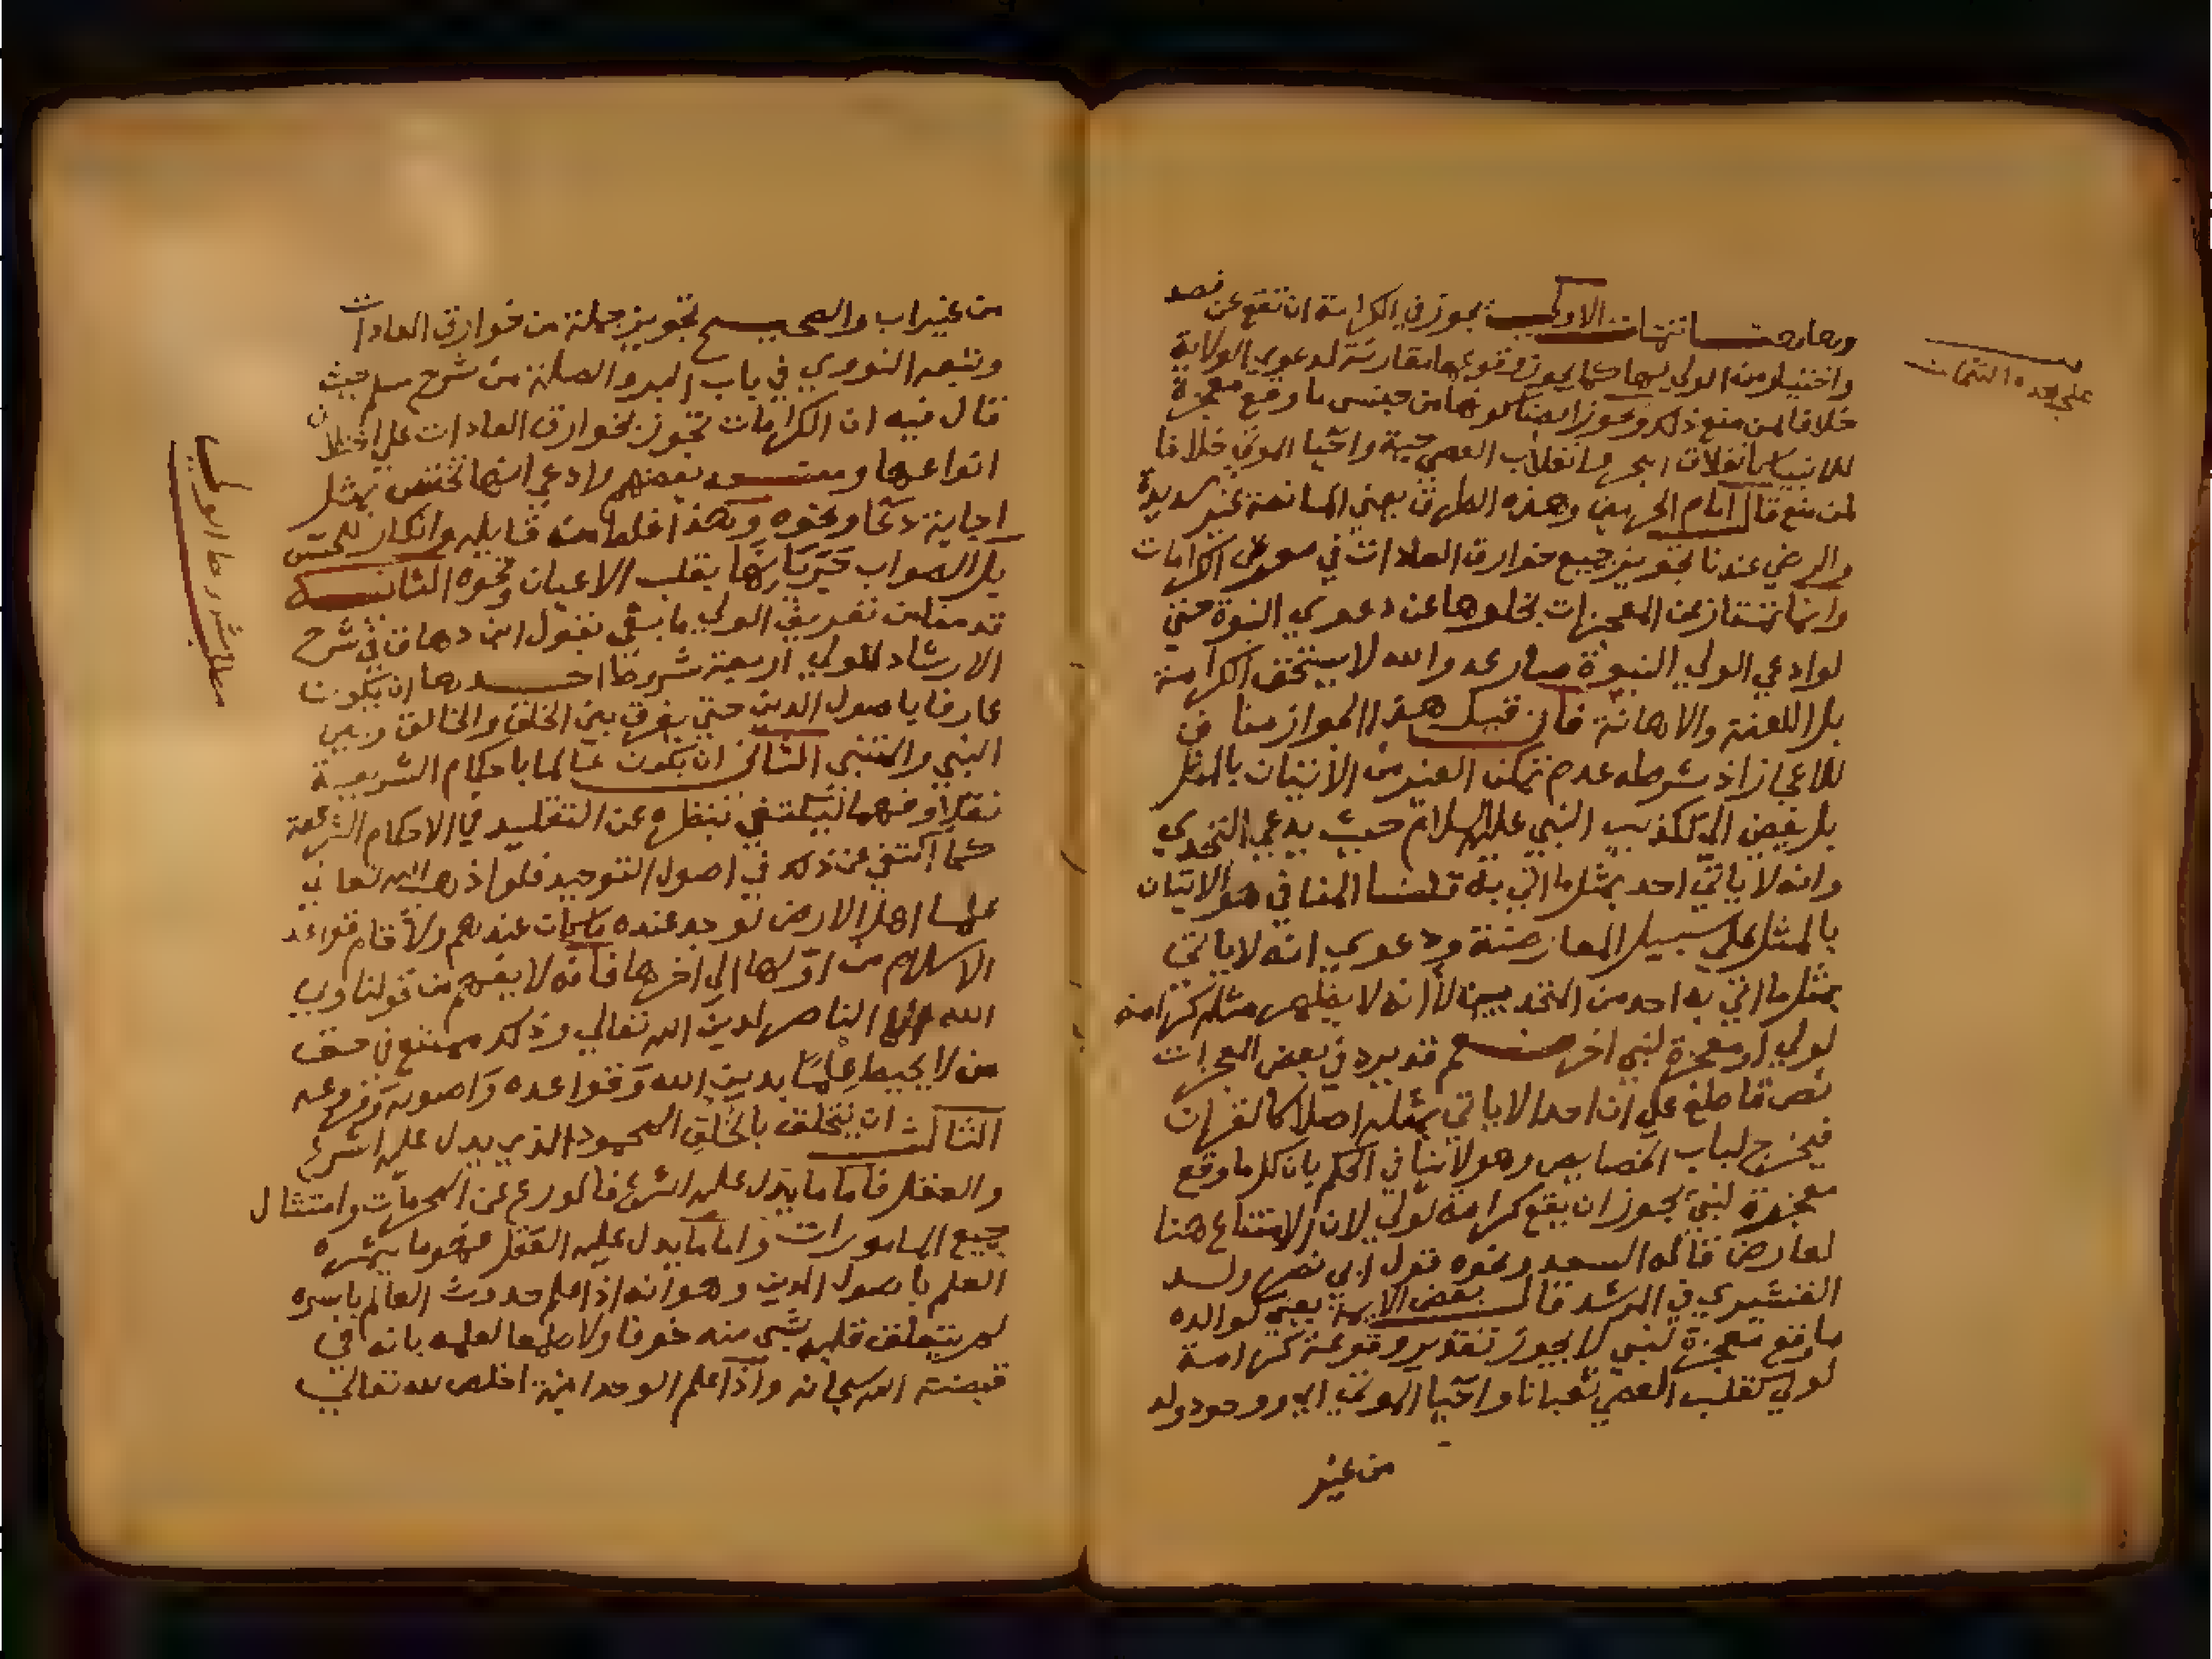 وهاهنا تتمات الاولى يجوز في الكرامة ان تقع عن قصد
واختيار من الولي بها كما يجوز وقوعها مقارنة لدعوى الولاية
خلافا لمن منع ذلك ويجوز ايضا كونها من جنس ما وقع معجزة
للانبيا كانفلاق البحر وانقلاب العصى حية واحيا الموتى خلافا
لمن منع قال امام الحرمين وهذه الطرق يعني المانعة غير سديدة
والمرضي عندنا تجويز جميع خوارق العادات في معرض الكرامات
وانما تمتاز عن المعجزات بخلوها عن دعوى النبوة حتى
لو ادعى الولي النبوة صار عدو الله لا يستحق الكرامة
بل اللعنة والاهانة فان قيل هذا الجواز مناف
للاعجاز اذ شرطه عدم تمكن الغير من الاتيان بالمثل
بل يفضي الى تكذيب النبي عليه السلام حيث يدعي التحدي
وانه لا ياتي احد بمثل ما اتي به قلنا المنافي هو الاتيان
بالمثل على سبيل المعارضة ودعوى انه لا ياتي
بمثل ما اتي به احد من المتحديين لا انه لا يظهر مثله كرامة
لولي او معجزة لنبي اخر نعم قد يرد في بعض المعجزات
نص قاطع على ان احدا لا ياتي بمثله اصلا كالقران
فيخرج لباب الخصايص وهو لا ينافي الحكم بان كل ما وقع
معجزة لنبي يجوز ان يقع كرامة لولي لان الامتناع هنا
لعارض قاله السعد ونحوه قول ابي نصر ولد
القشيري في المرشد قال بعض الايمة يعني كوالده
ما وقع معجزة لنبي لا يجوز تقدير وقوعه كرامة
لولي كقلب العصى ثعبانا واحيا الموتى ووجود ولد
من غير
على هذه التتمات
من غير اب والصحيح تجويز جملة من خوارق العادات
وتبعه النووي في باب البر والصلة من شرح مسلم حيث
قال فيه ان الكرامات تجوز بخوارق العادات على اختلاف
انواعها ومنعه بعضهم وادعى انها تختص بمثل
اجابة دعا ونحوه وهذا غلط من قايله وانكار للحس
بل الصواب جريانها بقلب الاعيان ونحوه الثانية
قد مضى من تعريف الولي ما بقي نقول ابن دهاق في شرح
الارشاد للولي اربعة شروط احدها ان يكون
عارفا باصول الدين حتى يفرق بين الخلق والخالق وبين
النبي والمتنبي الثاني ان يكون عالما باحكام الشريعة
نقلا وفهما ليكتفي بنظره عن التقليد في الاحكام الشرعية
كما اكتفى عن ذلك في اصول التوحيد فلو اذهب الله تعالى
علما اهل الارض لوجد عنده ما كان عندهم ولاقام قواعد
الاسلام من اولها الى اخرها فانه لا يفهم من قولنا ولي
الله الا الناصر لدين الله تعالى وذلك ممتنع في حق
من لا يحيط علما بدين الله وقواعده واصوله وفروعه
الثالث ان يتخلق بالخلق المحمود الذي يدل عليه الشرع
والعقل فاما ما يدل عليه الشرع فالورع عن المحرمات وامتثال
جميع المامورات واما ما يدل عليه العقل فهو ما يثمره
العلم باصول الدين وهو انه اذا علم حدوث العالم باسره
لم يتعلق قلبه بشي منه خوفا ولا طمعا لعلمه بانه في
قبضة الله سبحانه واذا علم الوحدانية اخلص لله تعالى
مطلب شروط الولي